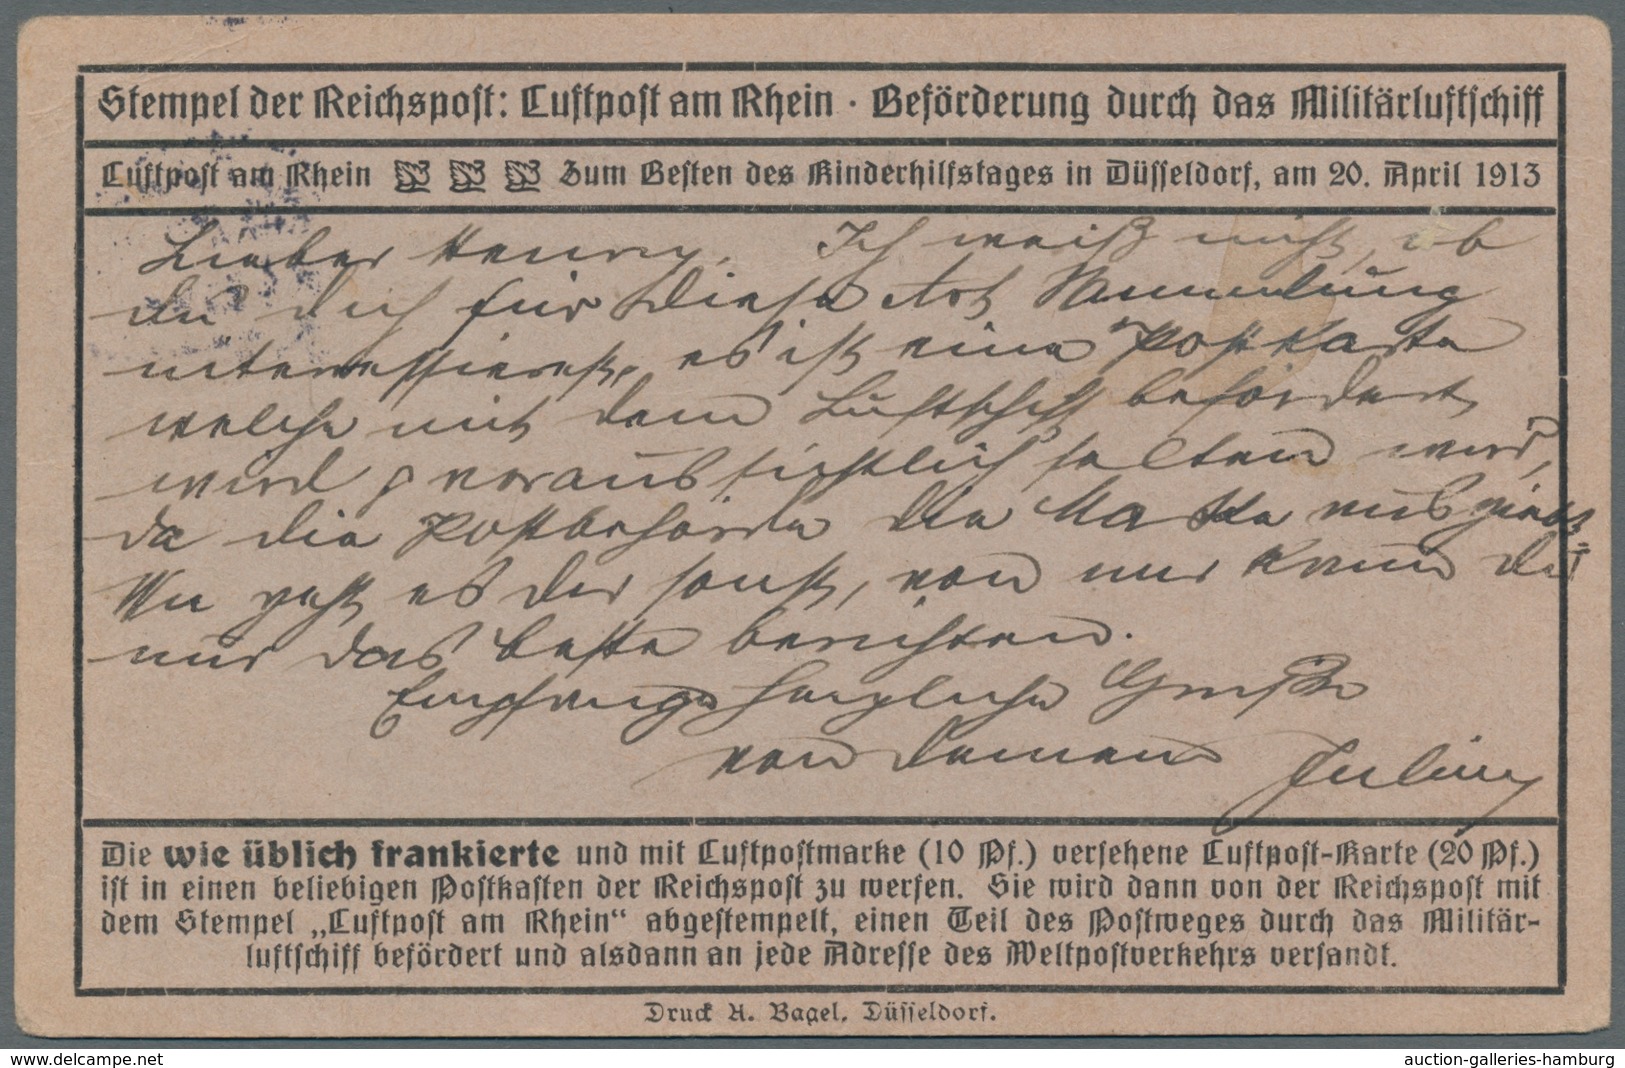 Stempel der Reichspost: Luftpost am Rhein · Beförderung durch das Militärluftschiff
Luftpost am Rhein Zum Besten des Kinderhilfstages in Düsseldorf, am 20. April 1913
Lieber Henry. Ich weiß nicht, ob
du dich für diese Art Sammlung
interessierst, es ist eine Postkarte
welche mit dem Luftschiff befördert
wird & voraussichtlich selten wird,
da die Postbehörde die Marke ausgiebt.
Wie geht es dir sonst, von mir kann dir
nur das beste berichten.
Empfange herzliche Grüße
von deinem Julius
Die wie üblich frankierte und mit Luftpostmarke (10 Pf.) versehene Luftpost-Karte (20 Pf.)
ist in einen beliebigen Postkasten der Reichspost zu werfen. Sie wird dann von der Reichspost mit
dem Stempel „Luftpost am Rhein“ abgestempelt, einen Teil des Postweges durch das Militär-
luftschiff befördert und alsdann an jede Adresse des Weltpostverkehrs versandt.
Druck A. Bagel, Düsseldorf.
www.delcampe.net
auction-galleries-hamburg